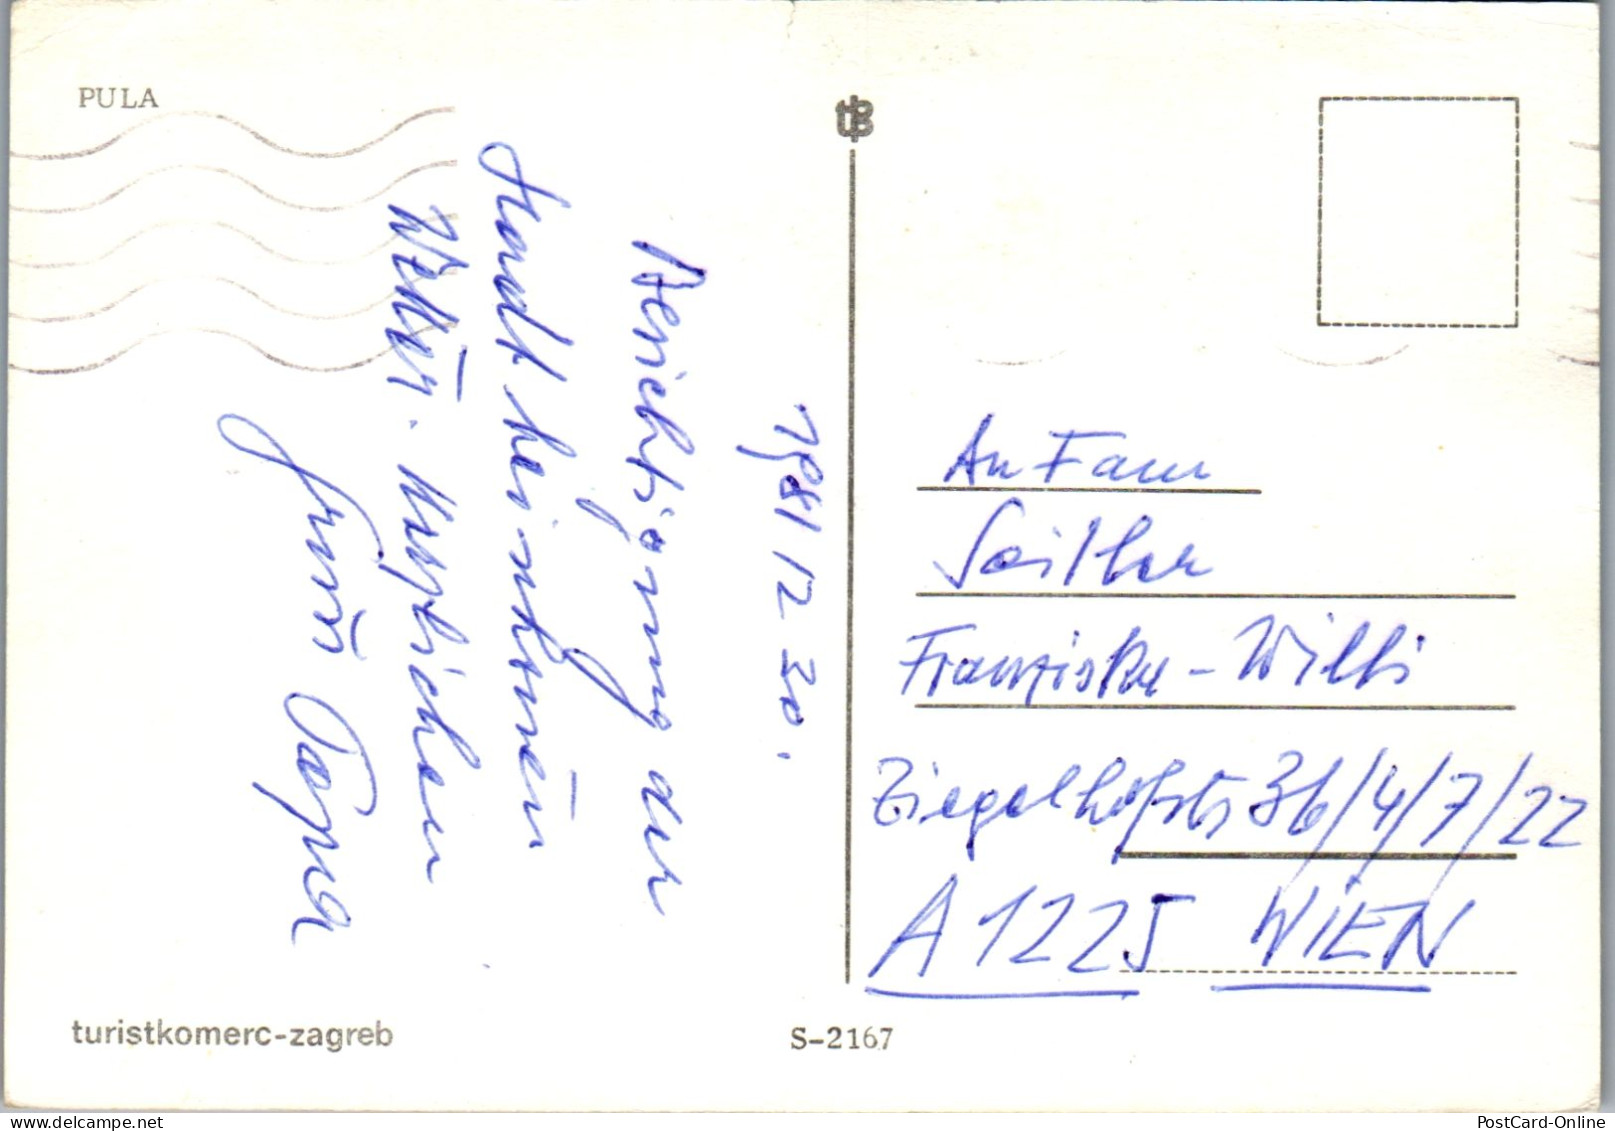 PULA
1981 12 30.
Besichtigung der
Stadt bei schönen
Wetter. Herzlichen
Gruß Papa
An Fam
Seitler
Franziska - Willi
Ziegelhofstr 36/4/7/22
A 1225 WIEN
turistkomerc-zagreb
S-2167
PostCard-Online